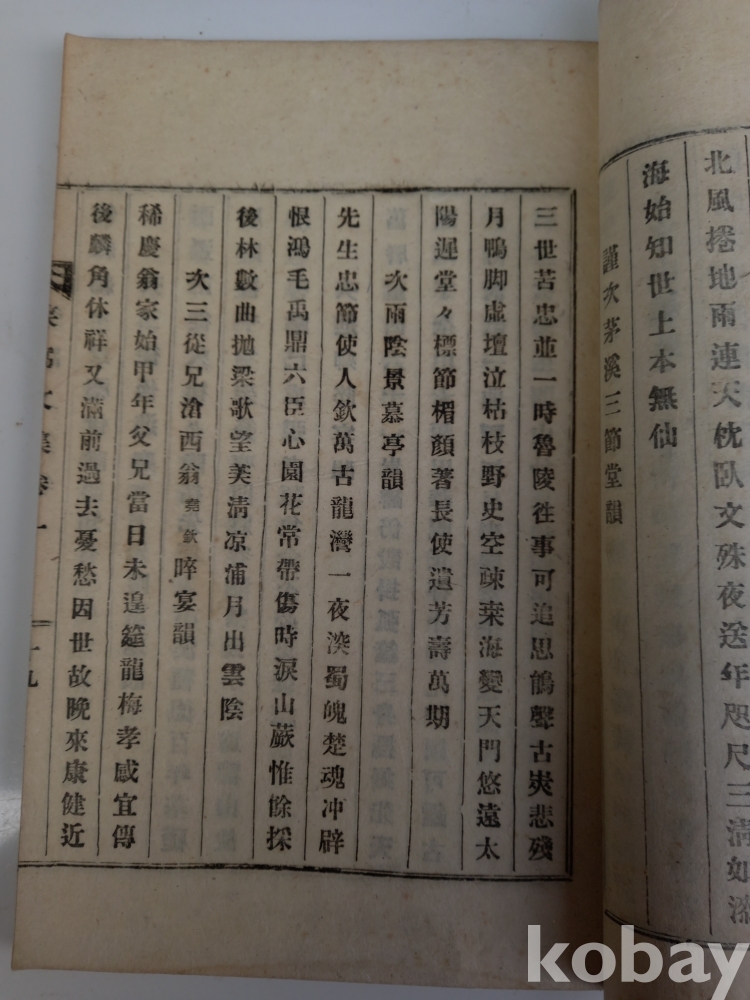 北風捲地雨連天枕臥文殊夜送年咫尺三清如
海始知世上本無仙
謹次茅溪三節堂韻
三世苦忠並一時魯陵往事可追思鵑聲古峽悲殘
月鴨脚虛壇泣枯枝野史空疎桒海變天門悠遠太
陽遲堂々標節楣顏著長使遺芳壽萬期
次雨陰景慕亭韻
先生忠節使人欽萬古龍灣一夜深蜀魄楚魂冲辟
恨鴻毛禹鼎六臣心園花常帶傷時淚山蕨惟餘採
後林數曲拋梁歌望美淸凉浦月出雲陰
次三從兄滄西翁堯欽晬宴韻
稀慶翁家始甲年父兄當日未遑筵龍梅孝感宜傳
後麟角休祥又滿前過去憂愁因世故晚來康健近
文集卷一
十九
kobay